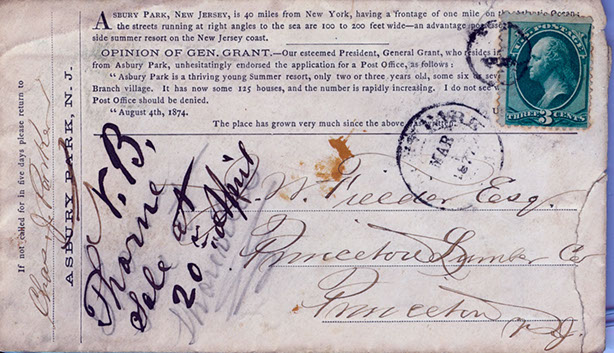 ASBURY PARK, NEW JERSEY, is 40 miles from New York, having a frontage of one mile on
the streets running at right angles to the sea are 100 to 200 feet wide—an advantage
side summer resort on the New Jersey coast.
OPINION OF GEN. GRANT.—Our esteemed President, General Grant, who resides
from Asbury Park, unhesitatingly endorsed the application for a Post Office, as follows:
"Asbury Park is a thriving young Summer resort, only two or three years old, some six
Branch village. It has now some 125 houses, and the number is rapidly increasing. I do not see
Post Office should be denied.
"August 4th, 1874.
The place has grown very much since the above
U.S. POSTAGE
THREE 3 CENTS
PARK
MAR
If not called for in five days please return to
Chas. J. Parker
ASBURY PARK, N. J.
N.B.
Thorne
Sale at
20 April
Fielder Esq.
Princeton Lumber Co
Princeton
N.J.